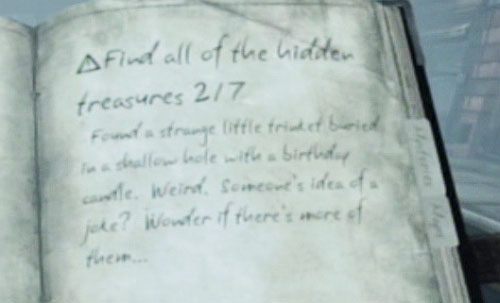 △Find all of the hidden
treasures 2/7
Found a strange little trinket buried
in a shallow hole with a birthday
candle. Weird. Someone's idea of a
joke? Wonder if there's more of
them...